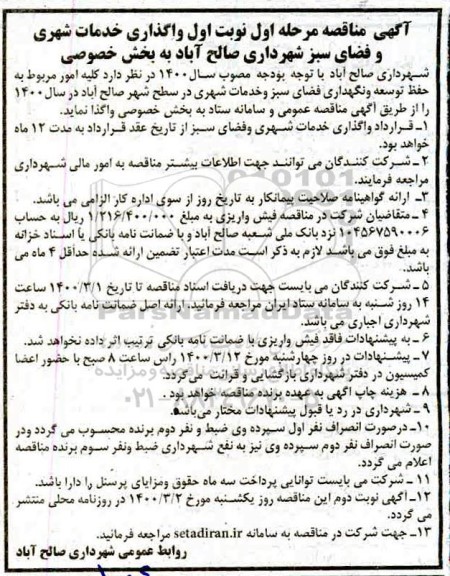 آگهی مناقصه مرحله اول نوبت اول واگذاری خدمات شهری
و فضای سبز شهرداری صالح آباد به بخش خصوصی
شهرداری صالح آباد با توجه بودجه مصوب سال ۱۴۰۰ در نظر دارد کلیه امور مربوط به
حفظ توسعه ونگهداری فضای سبز وخدمات شهری در سطح شهر صالح آباد در سال ۱۴۰۰
را از طریق آگهی مناقصه عمومی و سامانه ستاد به بخش خصوصی واگذا نماید.
۱- قرارداد واگذاری خدمات شهری وفضای سبز از تاریخ عقد قرارداد به مدت ۱۲ ماه
خواهد بود.
۲- شرکت کنندگان می توانند جهت اطلاعات بیشتر مناقصه به امور مالی شهرداری
مراجعه فرمایند.
۳- ارائه گواهینامه صلاحیت پیمانکار به تاریخ روز از سوی اداره کار الزامی می باشد.
۴- متقاضیان شرکت در مناقصه فیش واریزی به مبلغ ۱/۲۱۶/۴۰۰/۰۰۰ ریال به حساب
۱۰۴۵۶۷۵۹۰۰۰۶ نزد بانک ملی شعبه صالح آباد و یا ضمانت نامه بانکی یا اسناد خزانه
به مبلغ فوق می باشد لازم به ذکر است مدت اعتبار تضمین ارائه شده حداقل ۴ ماه می
باشد.
۵- شرکت کنندگان می بایست جهت دریافت اسناد مناقصه تا تاریخ ۱۴۰۰/۳/۱ ساعت
۱۴ روز شنبه به سامانه ستاد ایران مراجعه فرمائید. ارائه اصل ضمانت نامه بانکی به دفتر
شهرداری اجباری می باشد.
۶- به پیشنهادات فاقد فیش واریزی یا ضمانت نامه بانکی ترتیب اثر داده نخواهد شد.
۷- پیشنهادات در روز چهارشنبه مورخ ۱۴۰۰/۳/۱۲ راس ساعت ۸ صبح با حضور اعضا
کمیسیون در دفتر شهرداری بازگشایی و قرائت می‌گردد.
۸- هزینه چاپ آگهی به عهده برنده مناقصه خواهد بود.
۹- شهرداری در رد یا قبول پیشنهادات مختار می‌باشد.
۱۰- درصورت انصراف نفر اول سپرده وی ضبط و نفر دوم برنده محسوب می گردد ودر
صورت انصراف نفر دوم سپرده وی نیز به نفع شهرداری ضبط ونفر سوم برنده مناقصه
اعلام می گردد.
۱۱- شرکت می بایست توانایی پرداخت سه ماه حقوق ومزایای پرسنل را دارا باشد.
۱۲- آگهی نوبت دوم این مناقصه روز یکشنبه مورخ ۱۴۰۰/۳/۲ در روزنامه محلی منتشر
می گردد.
۱۳- جهت شرکت در مناقصه به سامانه setadiran.ir مراجعه فرمائید.
روابط عمومی شهرداری صالح آباد